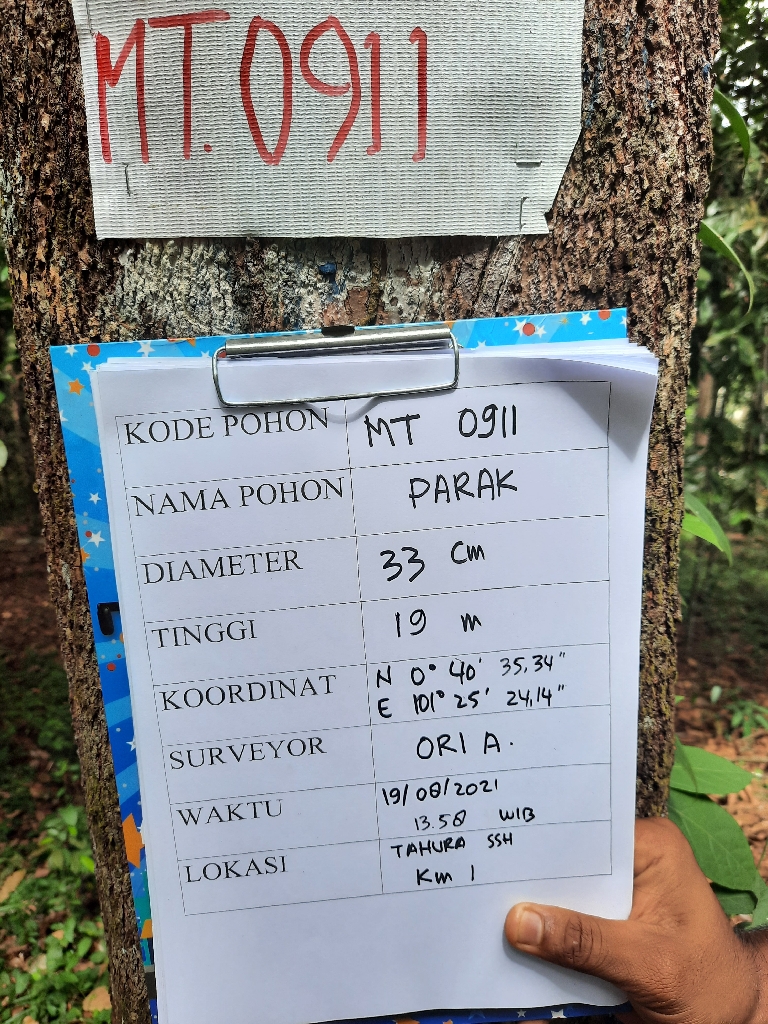 MT.0911
KODE POHON MT 0911
NAMA POHON PARAK
DIAMETER 33 cm
TINGGI 19 m
KOORDINAT N 0° 40' 35,34"
E 101° 25' 24,14"
SURVEYOR ORI A.
WAKTU 19/08/2021
13.58 WIB
LOKASI TAHURA SSH
Km 1